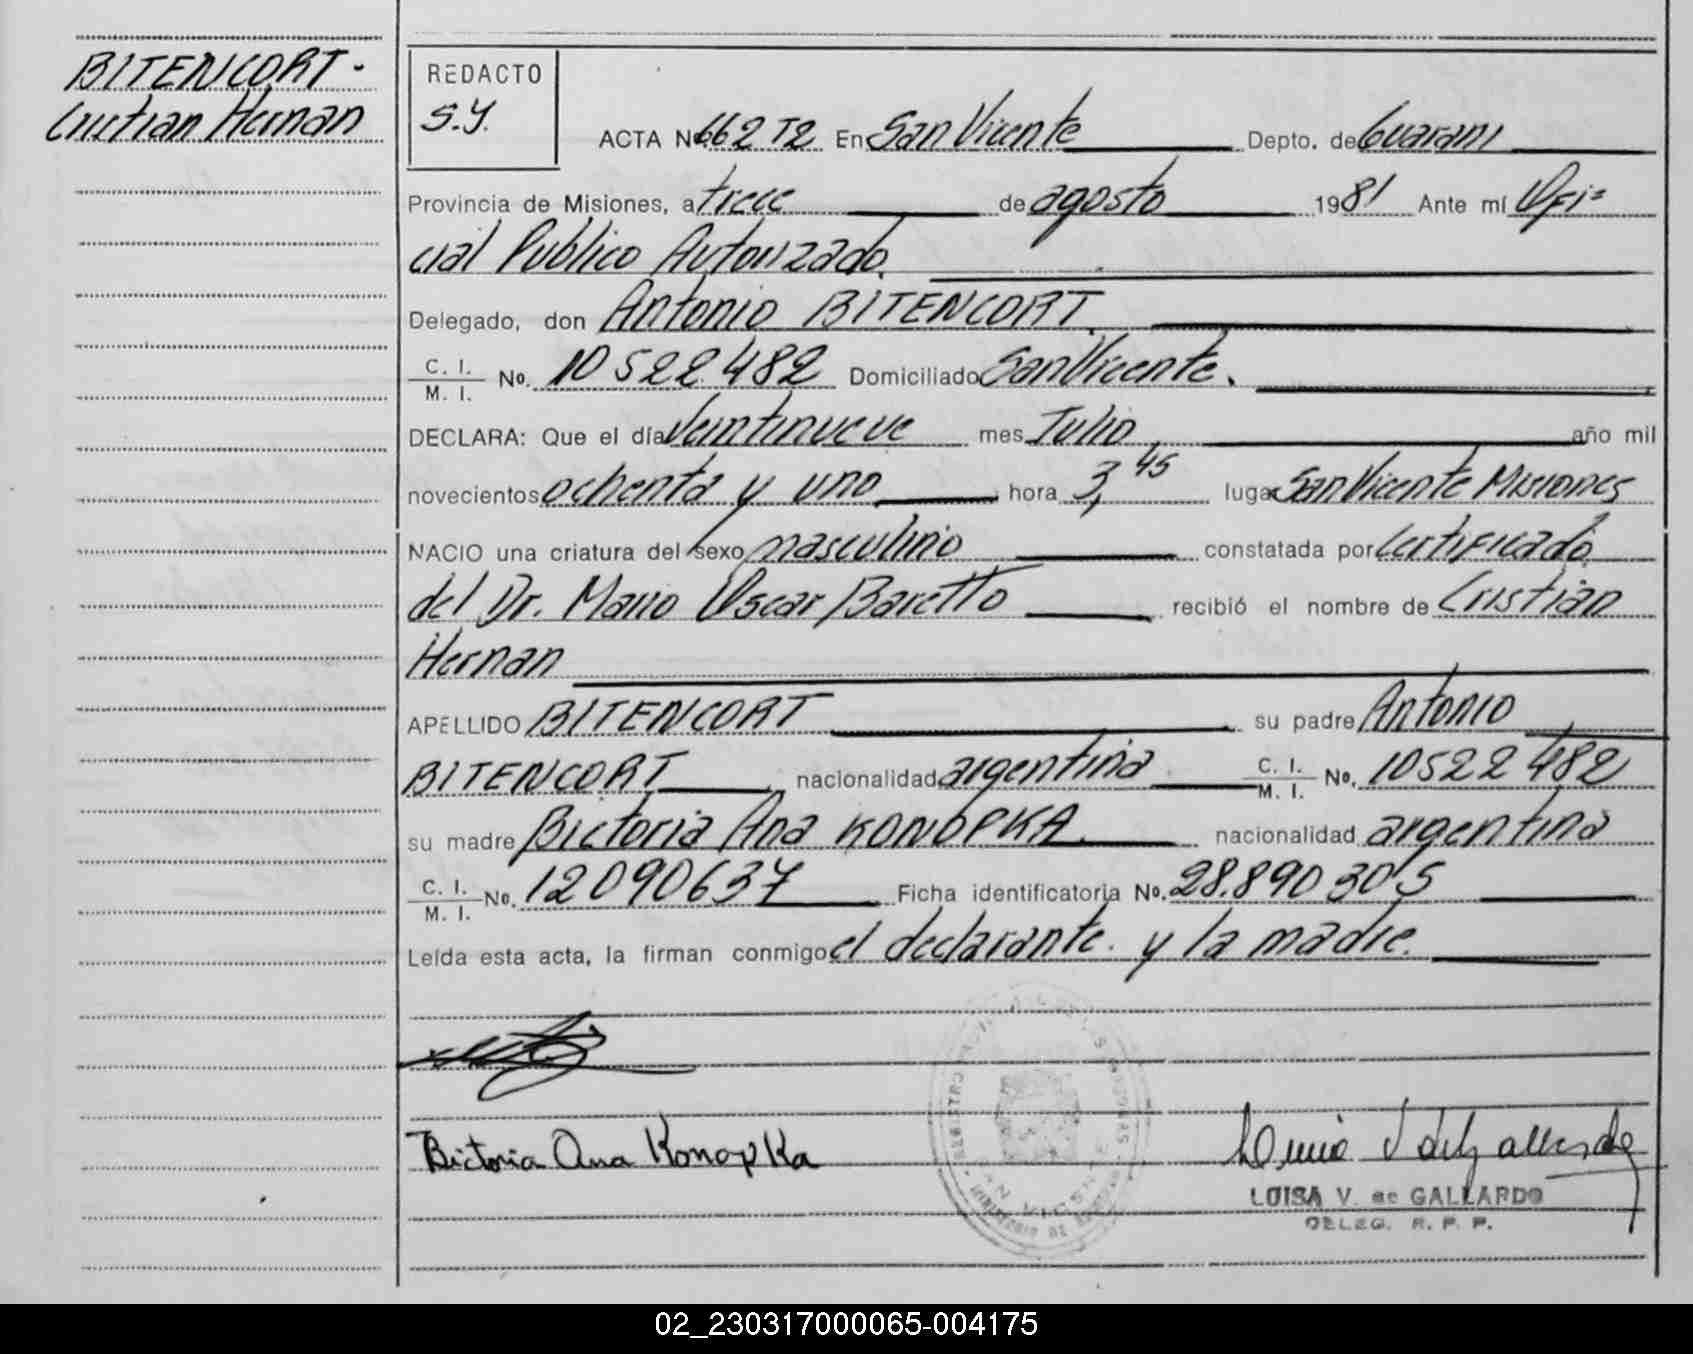 BITENCORT.
Cristian Hernan
REDACTO
S.Y.
ACTA No 662 T2 En San Vicente Depto. de Guarani
Provincia de Misiones, a trece de agosto 1981 Ante mí Ofi=
cial Publico Autorizado.
Delegado, don Antonio BITENCORT.
C. I. / M. I. No. 10522.482 Domiciliado San Vicente.
DECLARA: Que el día Veintinueve mes Julio, año mil
novecientos ochenta y uno hora 3,45 lugar San Vicente Misiones
NACIO una criatura del sexo masculino constatada por Certificado
del Dr. Mario Oscar Baretto recibió el nombre de Cristian
Hernan
APELLIDO BITENCORT su padre Antonio
BITENCORT nacionalidad argentina C. I. / M. I. No. 10522482
su madre Bictoria Ana KONOPKA nacionalidad argentina
C. I. / M. I. No. 12090637 Ficha identificatoria No. 28.890305
Leída esta acta, la firman conmigo el declarante. y la madre.
Bictoria Ana Konopka
SAN VICENTE
LUISA V. de GALLARDO
DELEG. R. P. P.
02_230317000065-004175